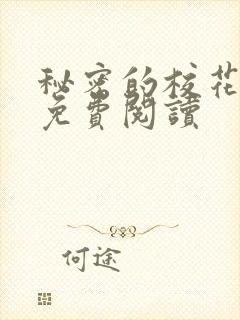 秘密的校花
免費閱讀
何途